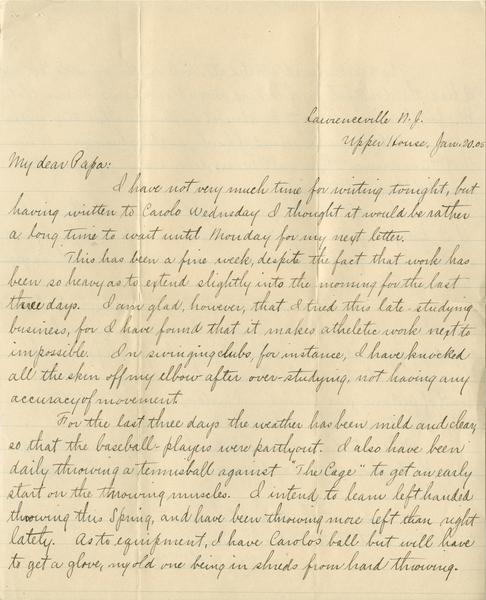 Lawrenceville N.J.
Upper House, Jan. 20.05
My dear Papa:
I have not very much time for writing tonight, but
having written to Carolo Wednesday I thought it would be rather
a long time to wait until Monday for my next letter.
This has been a fine week, despite the fact that work has
been so heavy as to extend slightly into the morning for the last
three days. I am glad, however, that I tried this late-studying
business, for I have found that it makes athletic work next to
impossible. In swinging clubs, for instance, I have knocked
all the skin off my elbow after over-studying, not having any
accuracy of movement.
For the last three days the weather has been mild and clear,
so that the baseball-players were partly out. I also have been
daily throwing a tennisball against "The Cage" to get an early
start on the throwing muscles. I intend to learn left handed
throwing this Spring, and have been throwing more left than right
lately. As to equipment, I have Carolo's ball but will have
to get a glove, my old one being in shreds from hard throwing.